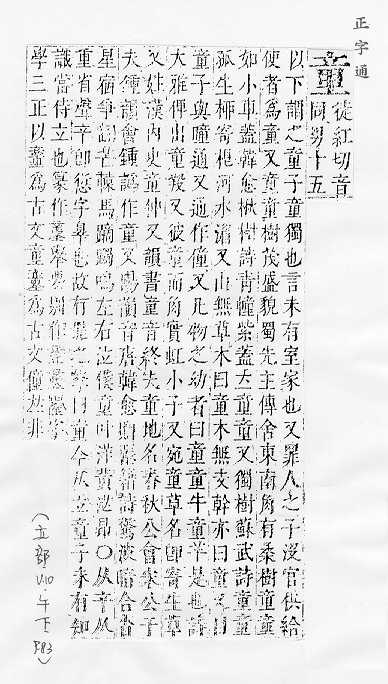 正字通
童 徒紅切音
同男十五
以下謂之童子童獨也言未有室家也又罪人之子沒官供給
使者為童又童童樹茂盛貌蜀先主傳舍東南角有桑樹童童
如小車蓋韓愈楸樹詩青幢紫蓋立童童又獨樹蘇武詩童童
孤生柳寄根河水又山無草木曰童木無枝幹亦曰童又目
童子與瞳通又通作僮又凡物之幼者曰童童牛童羊是也詩
大雅俾出童羖又彼童而角實虹小子又宛童草名卽寄生草
又姓漢內史童仲又韻書童音終夫童地名春秋公會宋公于
夫鍾韻會鍾譌作童又韻音唐韓愈聯驚波暗合沓
星宿爭翻芒轅馬蹢鳴左右泣僕童叶洋黃泓昂○从辛从
重省聲辛卽愆字辠也故有罪曰童今从立童子未有知
識當侍立也篆作
學三正以為古文童為古文僮非
(立部 V.10.午下 P.83)